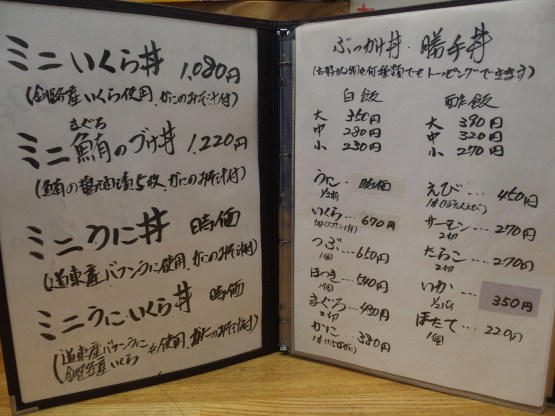 ミニいくら丼 1,080円
(釧路産いくら使用、かにのみそ汁付)
まぐろ
ミニ鮪のづけ丼 1,220円
(鮪の醤油漬5枚、かにのみそ汁付)
ミニうに丼 時価
(道東産バフンうに使用、かにのみそ汁付)
ミニうに・いくら丼 時価
道東産バフンうに
釧路産いくら を使用、かにのみそ汁付
ぶっかけ丼・勝手丼
(お好みで何種類でもトッピングできます)
白飯
大 350円
中 280円
小 230円
酢飯
大 390円
中 320円
小 270円
うに・時価
いくら… 670円
つぶ… 650円
1個
ほっき… 540円
1個
まぐろ… 430円
2切
かに… 380円
えび… 450円
サーモン… 270円
2切
たらこ… 270円
2切
いか… 350円
1/2パイ
ほたて… 220円
1個